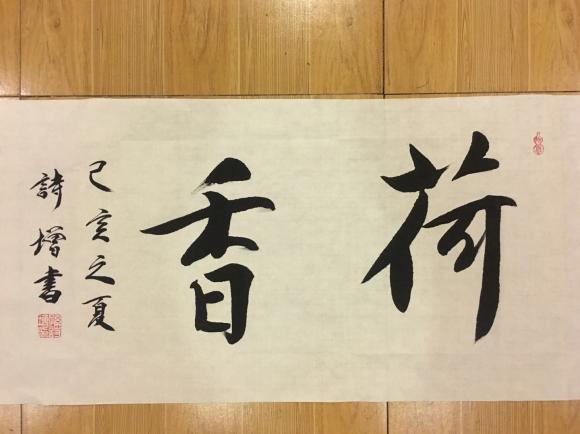 荷香
己亥之夏
詩增書